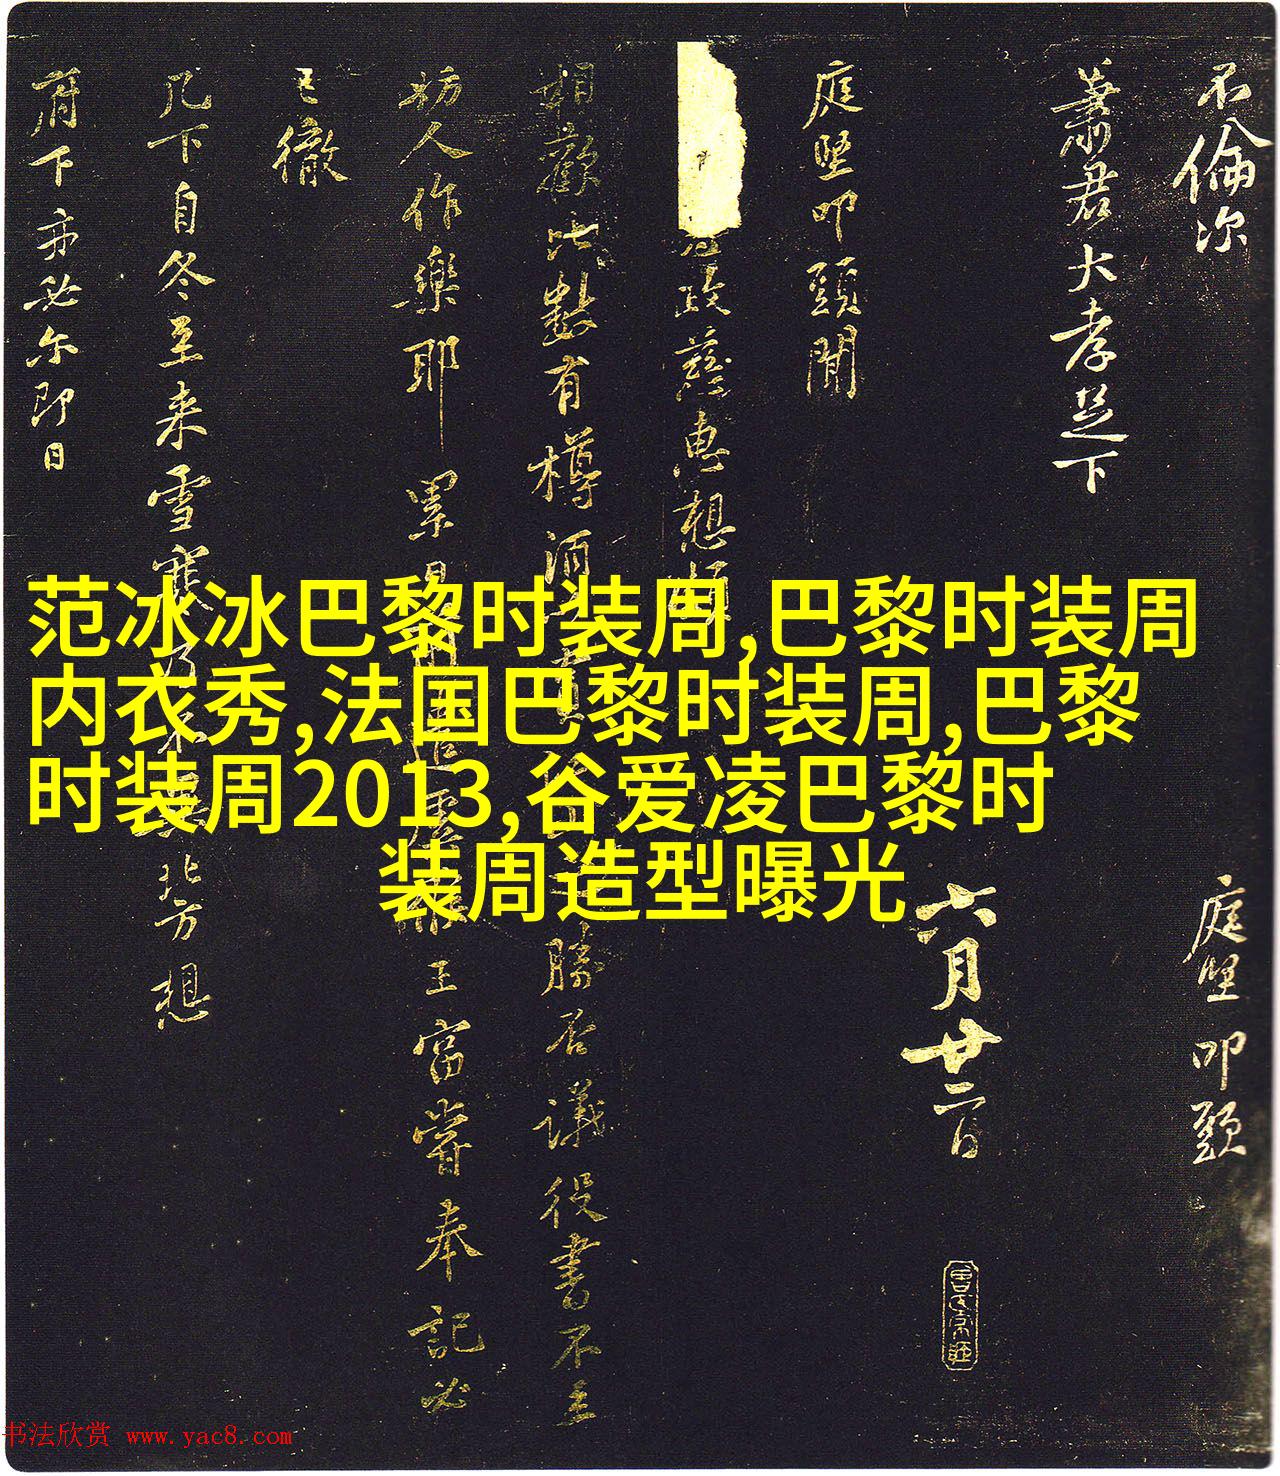 不倫次
蕭君大孝足下
庭堅叩頭
六月廿二日
庭堅叩頭聞
政慈惠想
相歡此數有樽酒
勝否議役書不立
妨人作樂耶累
王富嘗奉記必
已徹
几下自冬至来雪寒
北方想
府下亦必尔即日
范冰冰巴黎时装周,巴黎时装周
内衣秀,法国巴黎时装周,巴黎
时装周2013,谷爱凌巴黎时
装周造型曝光
书法欣赏 www.yac8.com